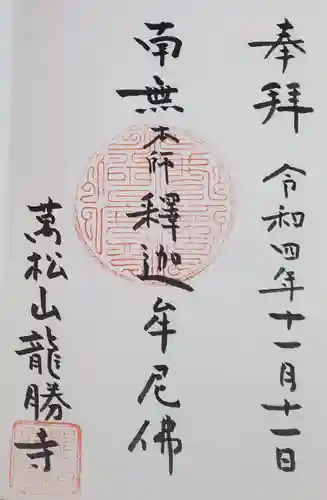 奉拝 令和四年十一月十一日
南無本師釋迦牟尼佛
萬松山龍勝寺